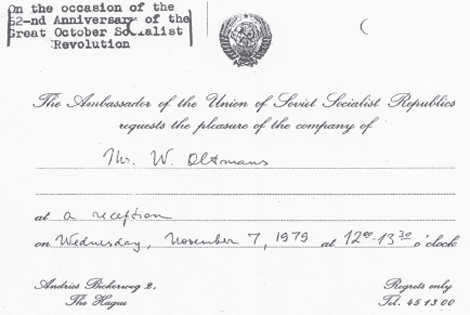 On the occasion of the
62-nd Anniversary of the
Great October Socialist
Revolution
The Ambassador of the Union of Soviet Socialist Republics
requests the pleasure of the company of
Mr. W. Oltmans
at a reception
on Wednesday, November 7, 1979 at 12⁰⁰-13³⁰ o'clock
Andries Bickerweg 2, Regrets only
The Hague Tel. 45 13 00